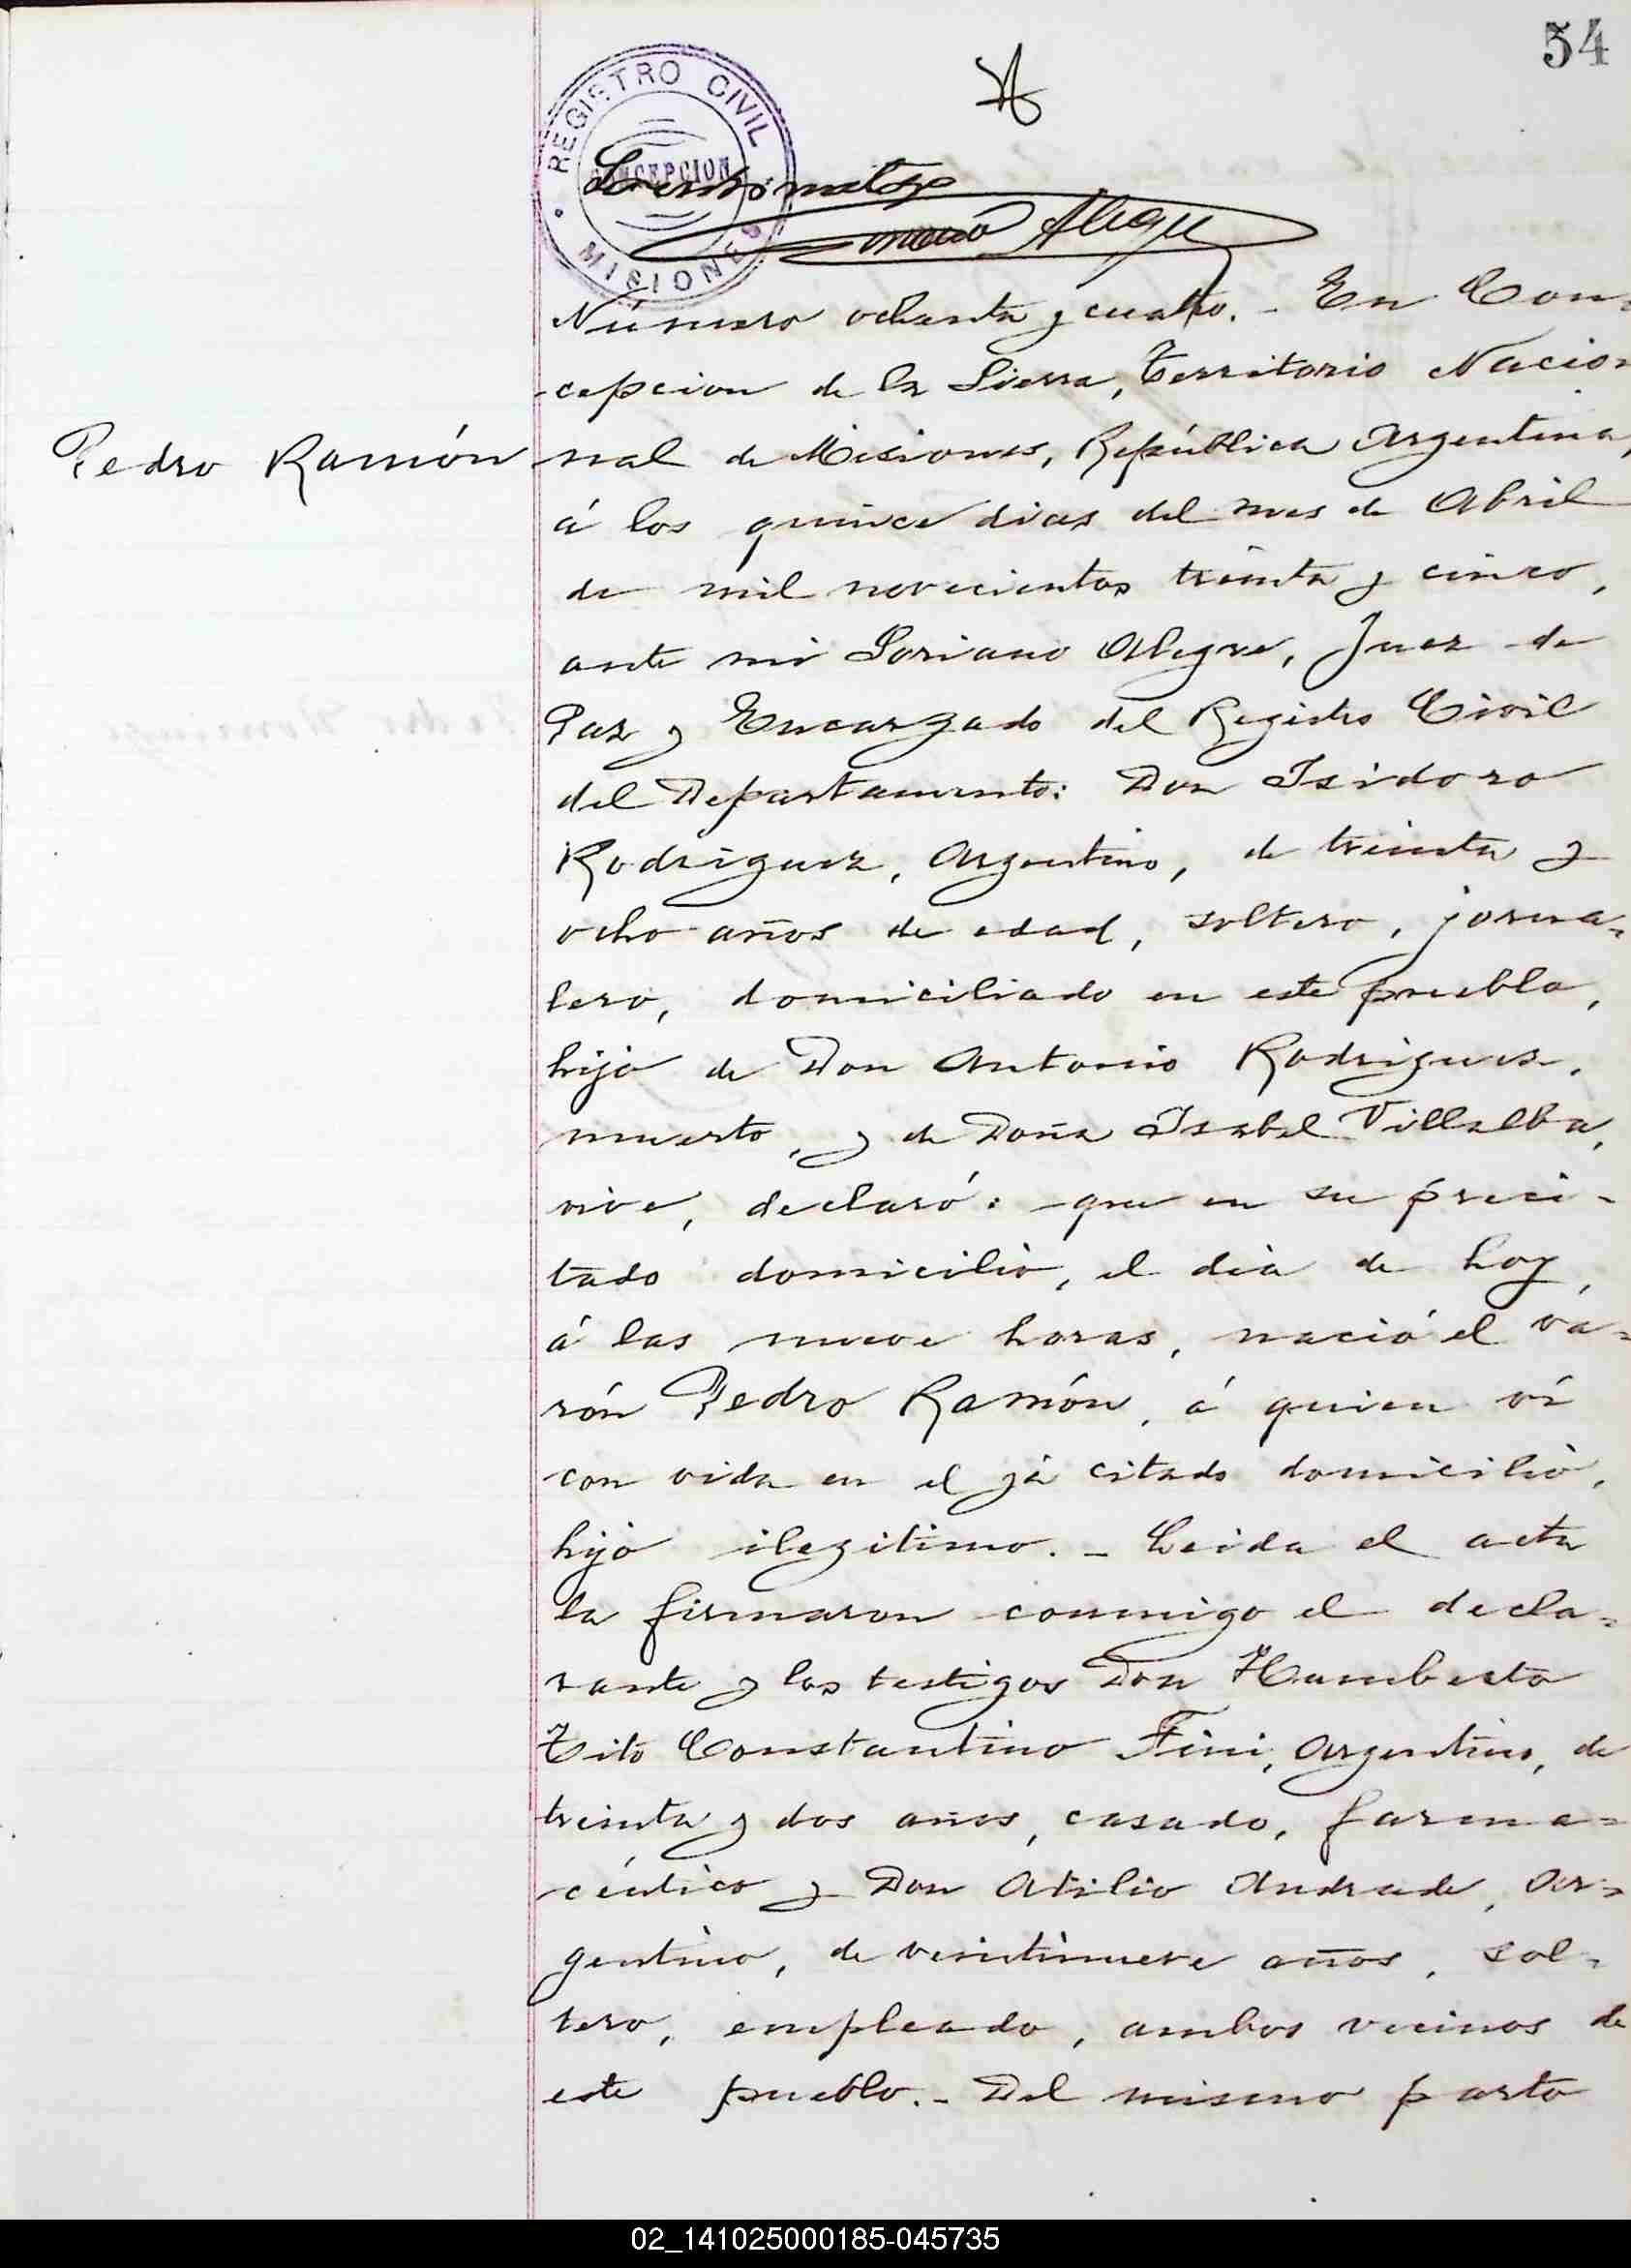 54
REGISTRO CIVIL
CONCEPCION
MISIONES
Soriano Alegre
Número ochenta y cuatro. - En Con-
cepcion de la Sierra, Territorio Nacio-
Pedro Ramón
nal de Misiones, República Argentina,
á los quince dias del mes de Abril
de mil novecientos treinta y cinco,
ante mi Soriano Alegre, Juez de
Paz y Encargado del Registro Civil
del Departamento: Don Isidoro
Rodriguez, Argentino, de treinta y
ocho años de edad, soltero, jorna=
lero, domiciliado en este pueblo,
hijo de Don Antonio Rodriguez,
muerto, y de Doña Isabel Villalba,
vive, declaró: que en su preci-
tado domicilio, el dia de hoy,
á las nueve horas, nació el va=
rón Pedro Ramón, á quien vi
con vida en el yá citado domicilio,
hijo ilegitimo. - Leida el acta
la firmaron conmigo el decla=
rante y los testigos Don Humberto
Tito Constantino Fini, Argentino, de
treinta y dos años, casado, farma=
céutico y Don Atilio Andrade, Ar=
gentino, de veintinueve años, sol=
tero, empleado, ambos vecinos de
este pueblo. - Del mismo parto
02_141025000185-045735